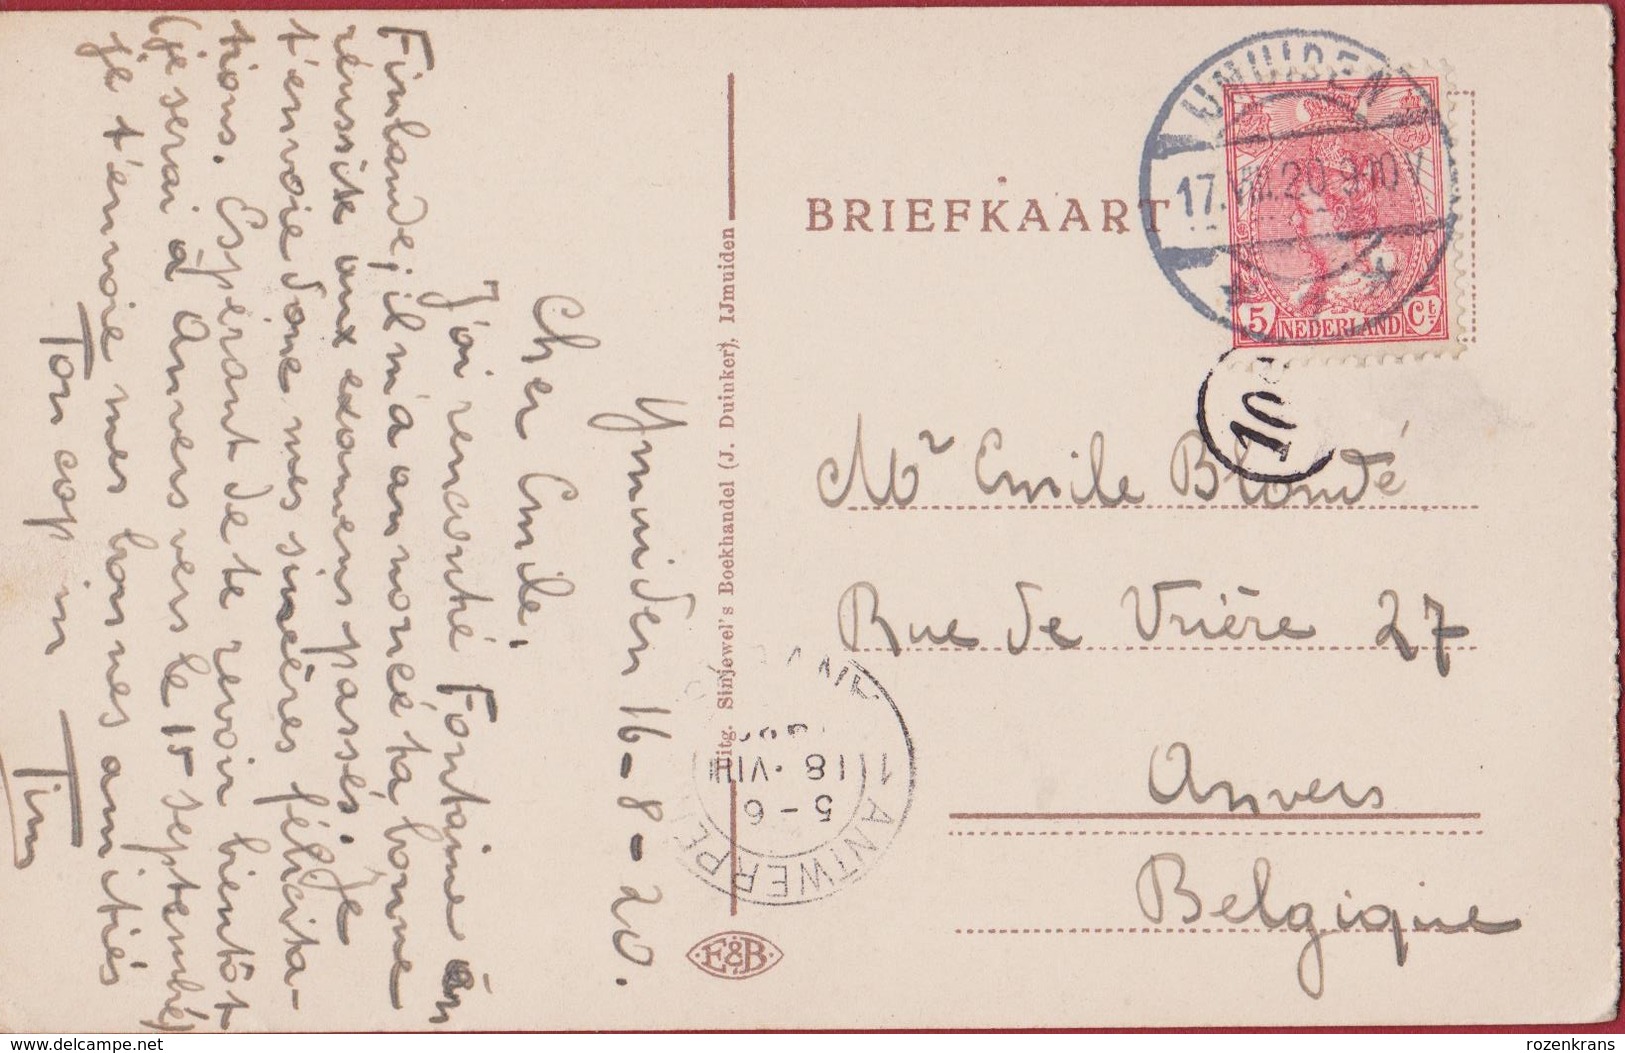 Ymuiden 16-8-20.
Cher Emile,
J'ai rencontré Fontaine en
Finlande; il m'a annoncé ta bonne
réussite aux examens passés. Je
t'envoie donc mes sincères félicita-
tions. Espérant de te revoir bientôt
(je serai à Anvers vers le 15 septembre)
je t'envoie mes bonnes amitiés
Ton cop in
Tim
Uitg. Sinjewel's Boekhandel (J. Duinker), IJmuiden
E&B
BRIEFKAART
IJMUIDEN
17.VIII.20 9-10 V
5 NEDERLAND Ct
10
Mr Emile Blondé
Rue de Vrière 27
Anvers
Belgique
1 ANTWERPEN
ANVERS
5-6
18.VIII
delcampe.net
rozenkrans